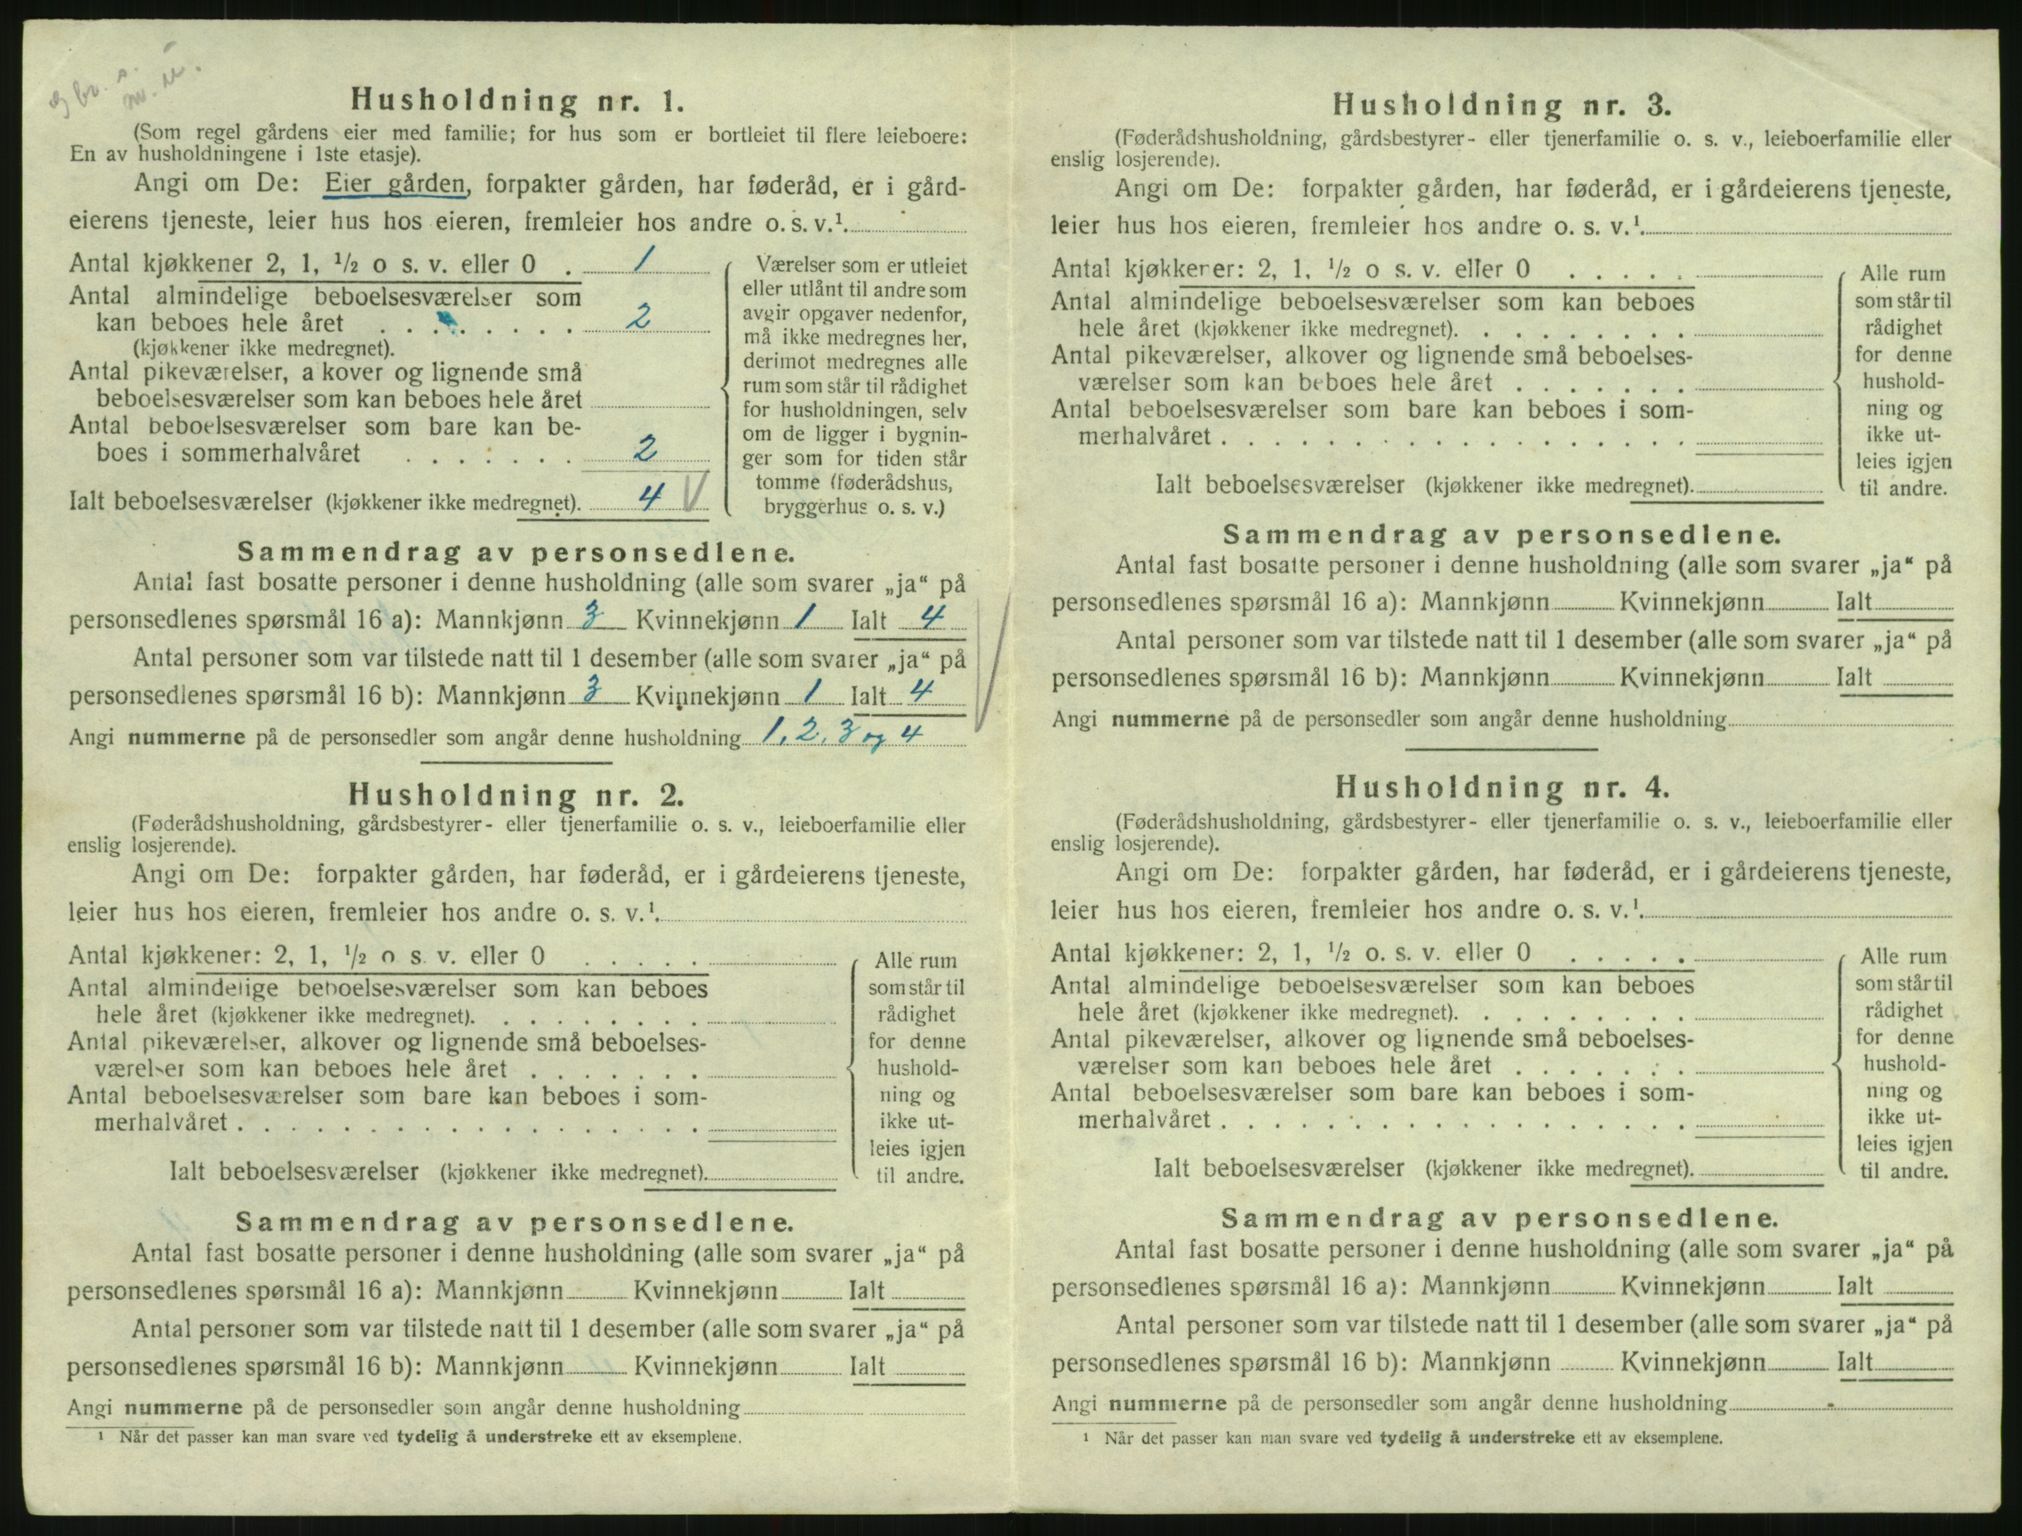 Husholdning nr. 1.
(Som regel gårdens eier med familie; for hus som er bortleiet til flere leieboere:
En av husholdningene i 1ste etasje).
Angi om De: Eier gården, forpakter gården, har føderåd, er i gård-
eierens tjeneste, leier hus hos eieren, fremleier hos andre o. s. v.¹
Antal kjøkkener 2, 1, ½ o s. v. eller 0 . 1
Antal almindelige beboelsesværelser som
kan beboes hele året . . . . . . . . 2
(kjøkkener ikke medregnet).
Antal pikeværelser, a kover og lignende små
beboelsesværelser som kan beboes hele året
Antal beboelsesværelser som bare kan be-
boes i sommerhalvåret . . . . . . . 2
Ialt beboelsesværelser (kjøkkener ikke medregnet). 4
Værelser som er utleiet
eller utlånt til andre som
avgir opgaver nedenfor,
må ikke medregnes her,
derimot medregnes alle
rum som står til rådighet
for husholdningen, selv
om de ligger i bygnin-
ger som for tiden står
tomme (føderådshus,
bryggerhus o. s. v.)
Sammendrag av personsedlene.
Antal fast bosatte personer i denne husholdning (alle som svarer „ja“ på
personsedlenes spørsmål 16 a): Mannkjønn 3 Kvinnekjønn 1 Ialt 4
Antal personer som var tilstede natt til 1 desember (alle som svarer „ja“ på
personsedlenes spørsmål 16 b): Mannkjønn 3 Kvinnekjønn 1 Ialt 4
Angi nummerne på de personsedler som angår denne husholdning 1, 2, 3 og 4
Husholdning nr. 2.
(Føderådshusholdning, gårdsbestyrer- eller tjenerfamilie o. s. v., leieboerfamilie eller
enslig losjerende).
Angi om De: forpakter gården, har føderåd, er i gårdeierens tjeneste,
leier hus hos eieren, fremleier hos andre o. s. v.¹
Antal kjøkkener: 2, 1, ½ o s. v. eller 0 . . . . .
Antal almindelige beboelsesværelser som kan beboes
hele året (kjøkkener ikke medregnet). . . . . . . . .
Antal pikeværelser, alkover og lignende små beboelses-
værelser som kan beboes hele året . . . . . . .
Antal beboelsesværelser som bare kan beboes i som-
merhalvåret . . . . . . . . . . . . . . . . . .
Ialt beboelsesværelser (kjøkkener ikke medregnet).
Alle rum
som står til
rådighet
for denne
hushold-
ning og
ikke ut-
leies igjen
til andre.
Sammendrag av personsedlene.
Antal fast bosatte personer i denne husholdning (alle som svarer „ja“ på
personsedlenes spørsmål 16 a): Mannkjønn Kvinnekjønn Ialt
Antal personer som var tilstede natt til 1 desember (alle som svarer „ja“ på
personsedlenes spørsmål 16 b): Mannkjønn Kvinnekjønn Ialt
Angi nummerne på de personsedler som angår denne husholdning
¹ Når det passer kan man svare ved tydelig å understreke ett av eksemplene.
Husholdning nr. 3.
(Føderådshusholdning, gårdsbestyrer- eller tjenerfamilie o. s. v., leieboerfamilie eller
enslig losjerende).
Angi om De: forpakter gården, har føderåd, er i gårdeierens tjeneste,
leier hus hos eieren, fremleier hos andre o. s. v.¹
Antal kjøkkener: 2, 1, ½ o s. v. eller 0 . . . . .
Antal almindelige beboelsesværelser som kan beboes
hele året (kjøkkener ikke medregnet). . . . . . . . .
Antal pikeværelser, alkover og lignende små beboelses-
værelser som kan beboes hele året . . . . . . .
Antal beboelsesværelser som bare kan beboes i som-
merhalvåret . . . . . . . . . . . . . . . . . .
Ialt beboelsesværelser (kjøkkener ikke medregnet).
Alle rum
som står til
rådighet
for denne
hushold-
ning og
ikke ut-
leies igjen
til andre.
Sammendrag av personsedlene.
Antal fast bosatte personer i denne husholdning (alle som svarer „ja“ på
personsedlenes spørsmål 16 a): Mannkjønn Kvinnekjønn Ialt
Antal personer som var tilstede natt til 1 desember (alle som svarer „ja“ på
personsedlenes spørsmål 16 b): Mannkjønn Kvinnekjønn Ialt
Angi nummerne på de personsedler som angår denne husholdning
Husholdning nr. 4.
(Føderådshusholdning, gårdsbestyrer- eller tjenerfamilie o. s. v., leieboerfamilie eller
enslig losjerende).
Angi om De: forpakter gården, har føderåd, er i gårdeierens tjeneste,
leier hus hos eieren, fremleier hos andre o. s. v.¹
Antal kjøkkener: 2, 1, ½ o. s. v. eller 0 . . . . .
Antal almindelige beboelsesværelser som kan beboes
hele året (kjøkkener ikke medregnet). . . . . . . . .
Antal pikeværelser, alkover og lignende små beboelses-
værelser som kan beboes hele året . . . . . . .
Antal beboelsesværelser som bare kan beboes i som-
merhalvåret . . . . . . . . . . . . . . . . . .
Ialt beboelsesværelser (kjøkkener ikke medregnet).
Alle rum
som står til
rådighet
for denne
hushold-
ning og
ikke ut-
leies igjen
til andre.
Sammendrag av personsedlene.
Antal fast bosatte personer i denne husholdning (alle som svarer „ja“ på
personsedlenes spørsmål 16 a): Mannkjønn Kvinnekjønn Ialt
Antal personer som var tilstede natt til 1 desember (alle som svarer „ja“ på
personsedlenes spørsmål 16 b): Mannkjønn Kvinnekjønn Ialt
Angi nummerne på de personsedler som angår denne husholdning
¹ Når det passer kan man svare ved tydelig å understreke ett av eksemplene.